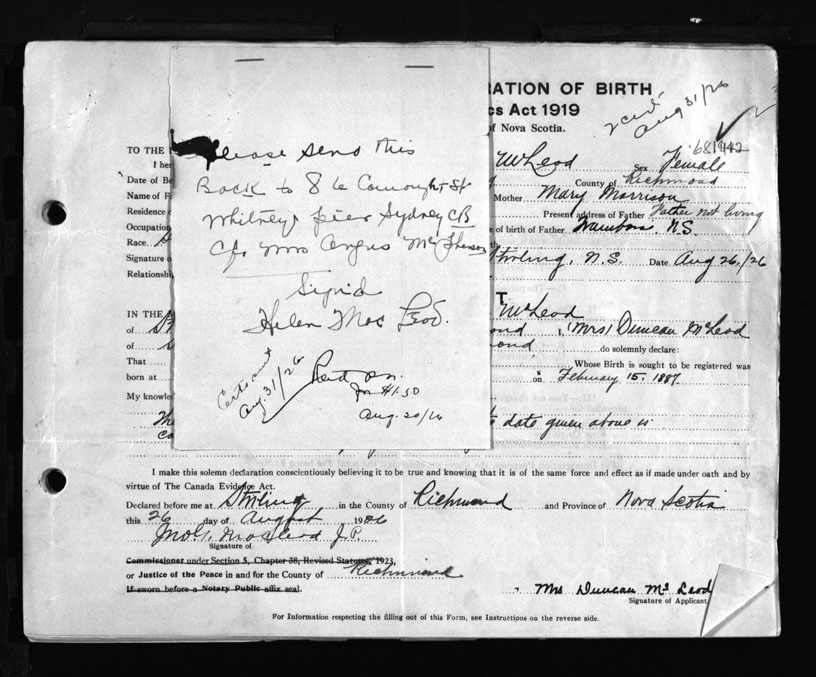 RATION OF BIRTH
cs Act 1919
of Nova Scotia.
Aug 31/26
681942
TO THE
I her
McLeod
Sex Female
Date of Be
County of Richmond
Name of F
Mother Mary Morrison
Residence
Present address of Father Father not living
Occupation
e of birth of Father N.S.
Race
Signature o
Stirling, N.S. Date Aug 26./26
Relationshi
Please send this
Back to 86 Connought St
Whitney pier Sydney CB
C/o Mrs Angus
Signed
Helen Mac Leod.
Cert sent
Aug. 31/26
for $1.50
Aug. 30/26
T
IN THE M
McLeod
of St
ond I, (Mrs) Duncan McLeod
of
mond do solemnly declare:
That
Whose Birth is sought to be registered was
born at
on February 15. 1887.
My knowled
The
date given above is
I make this solemn declaration conscientiously believing it to be true and knowing that it is of the same force and effect as if made under oath and by
virtue of The Canada Evidence Act.
Declared before me at Stirling in the County of Richmond and Province of Nova Scotia
this 26 day of August 1926
MacLeod J.P.
Signature of
Commissioner under Section 5, Chapter 38, Revised Statutes, 1923,
or Justice of the Peace in and for the County of Richmond
If sworn before a Notary Public affix seal.
Mrs Duncan McLeod
Signature of Applicant
For Information respecting the filling out of this Form, see Instructions on the reverse side.